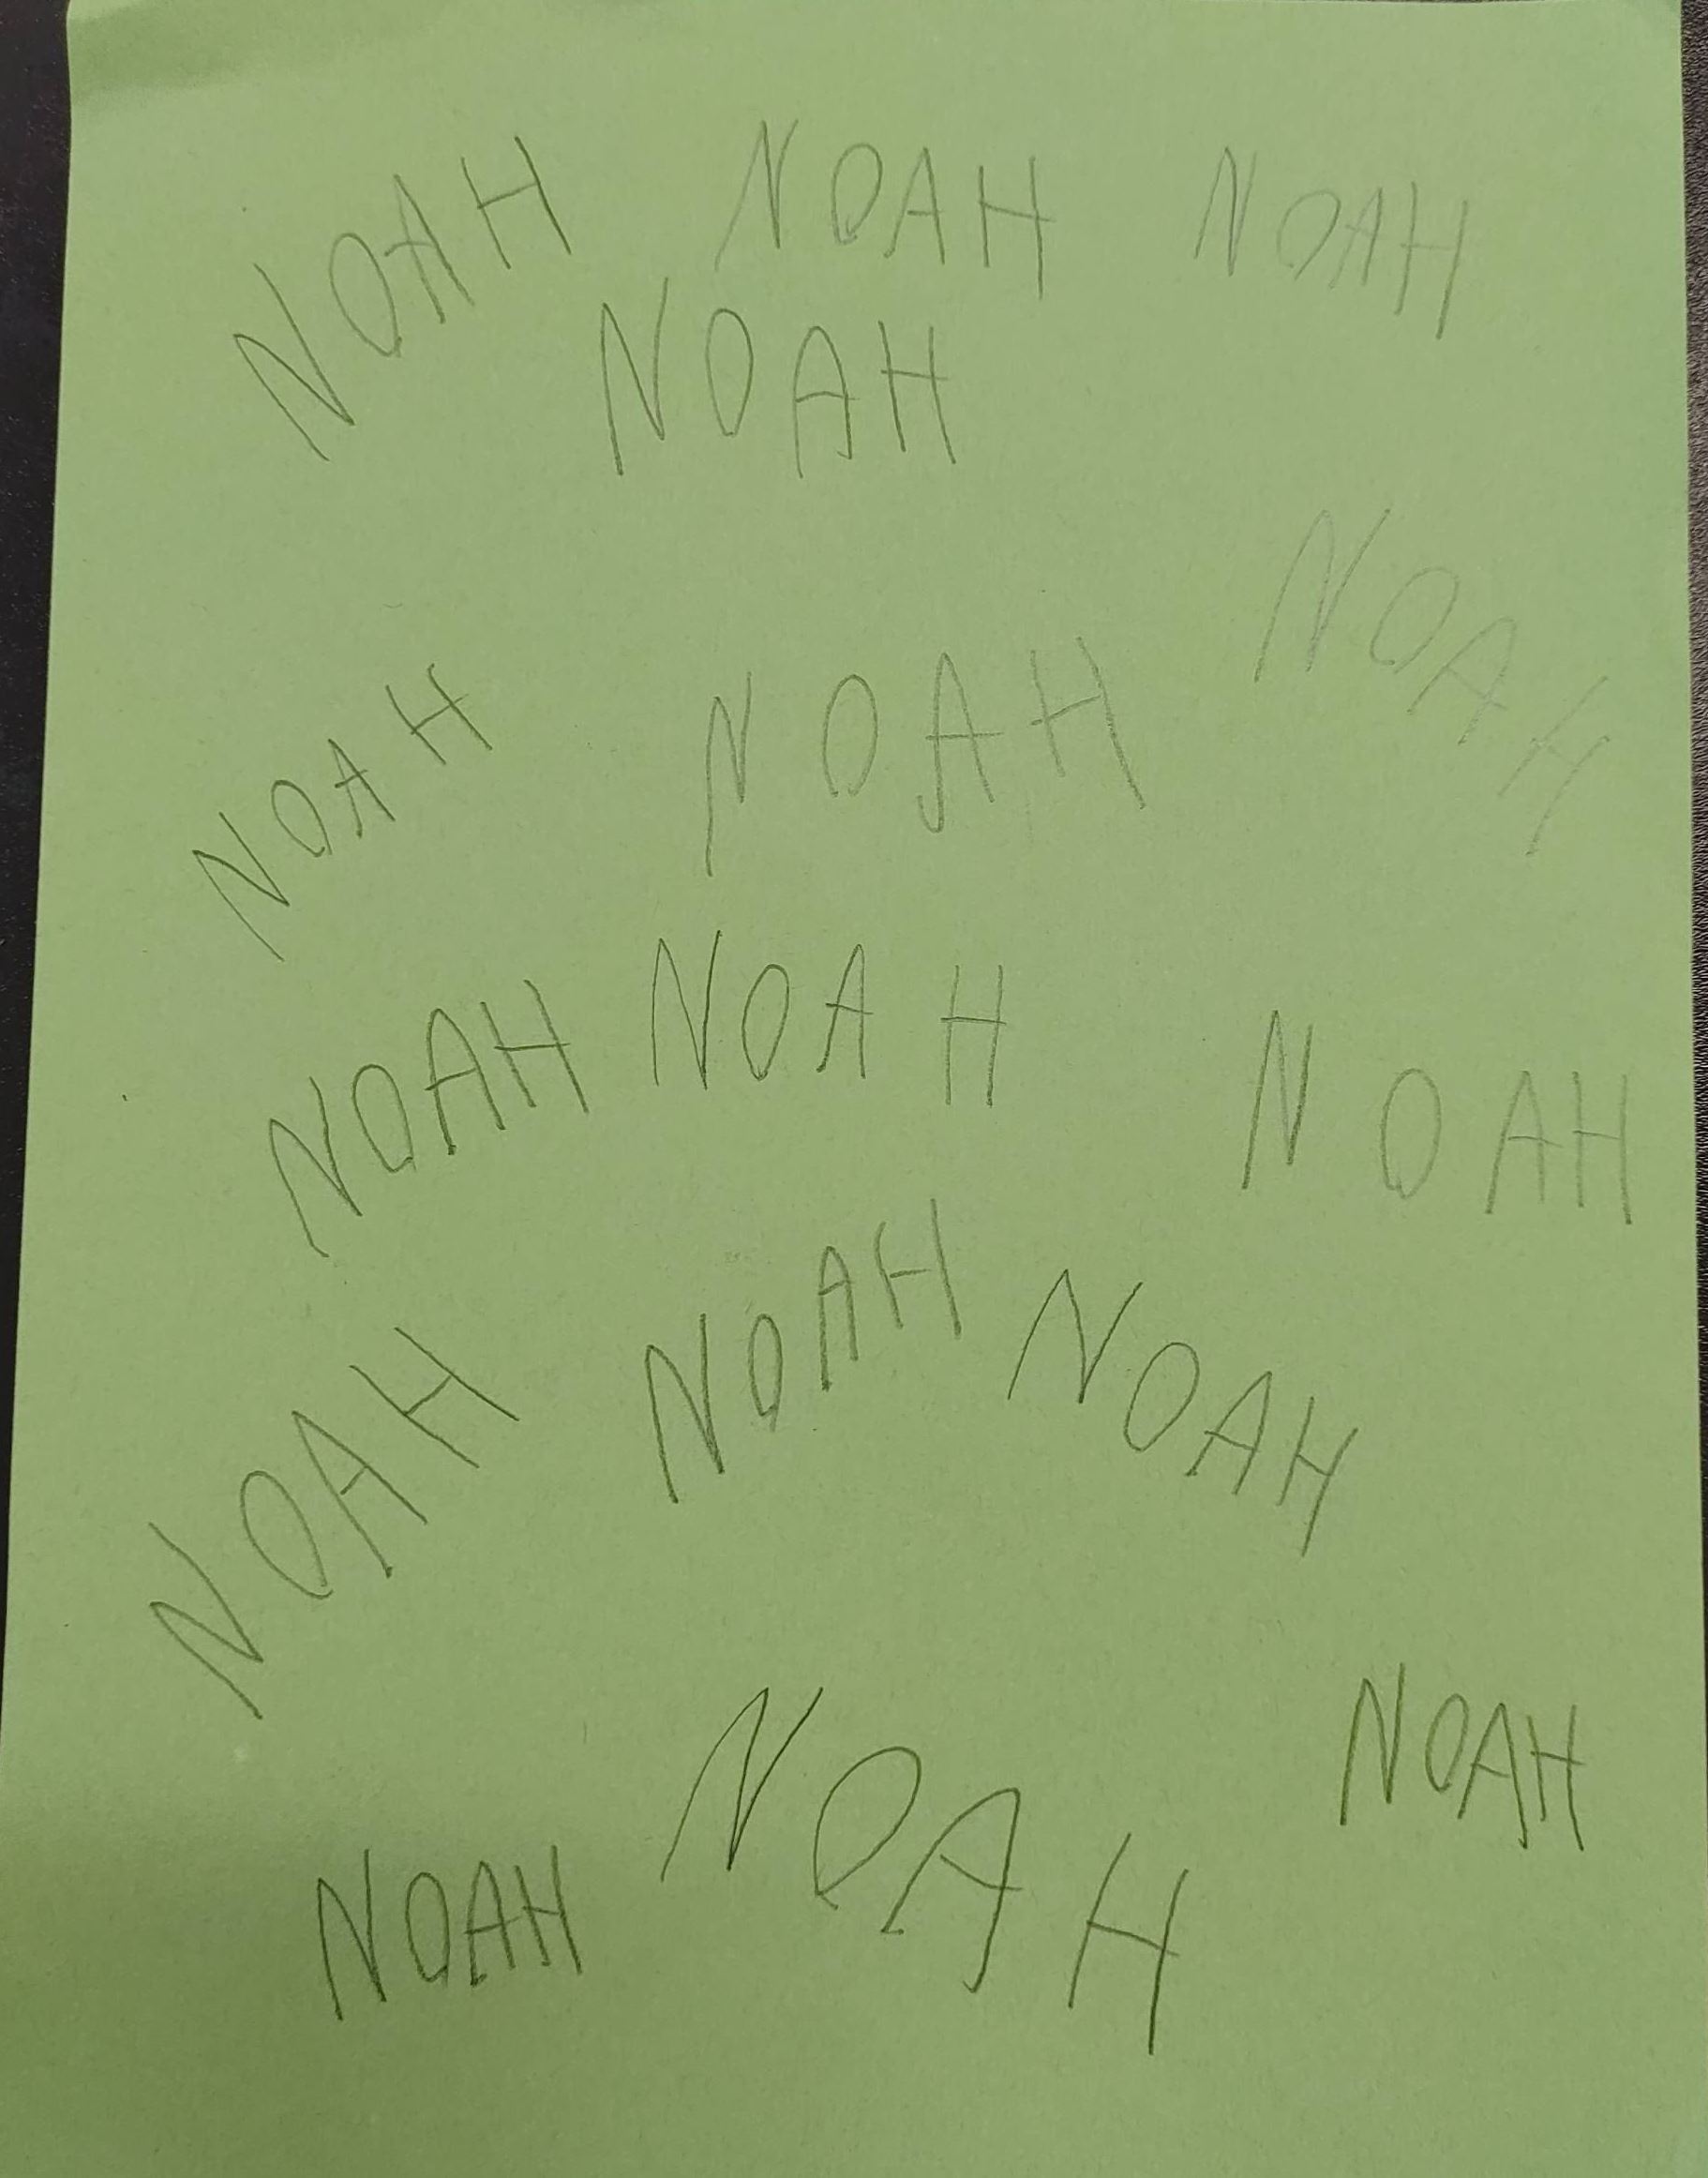 NOAH NOAH NOAH
NOAH
NOAH
NOAH NOAH
NOAH NOAH NOAH
NOAH NOAH NOAH
NOAH
NOAH NOAH